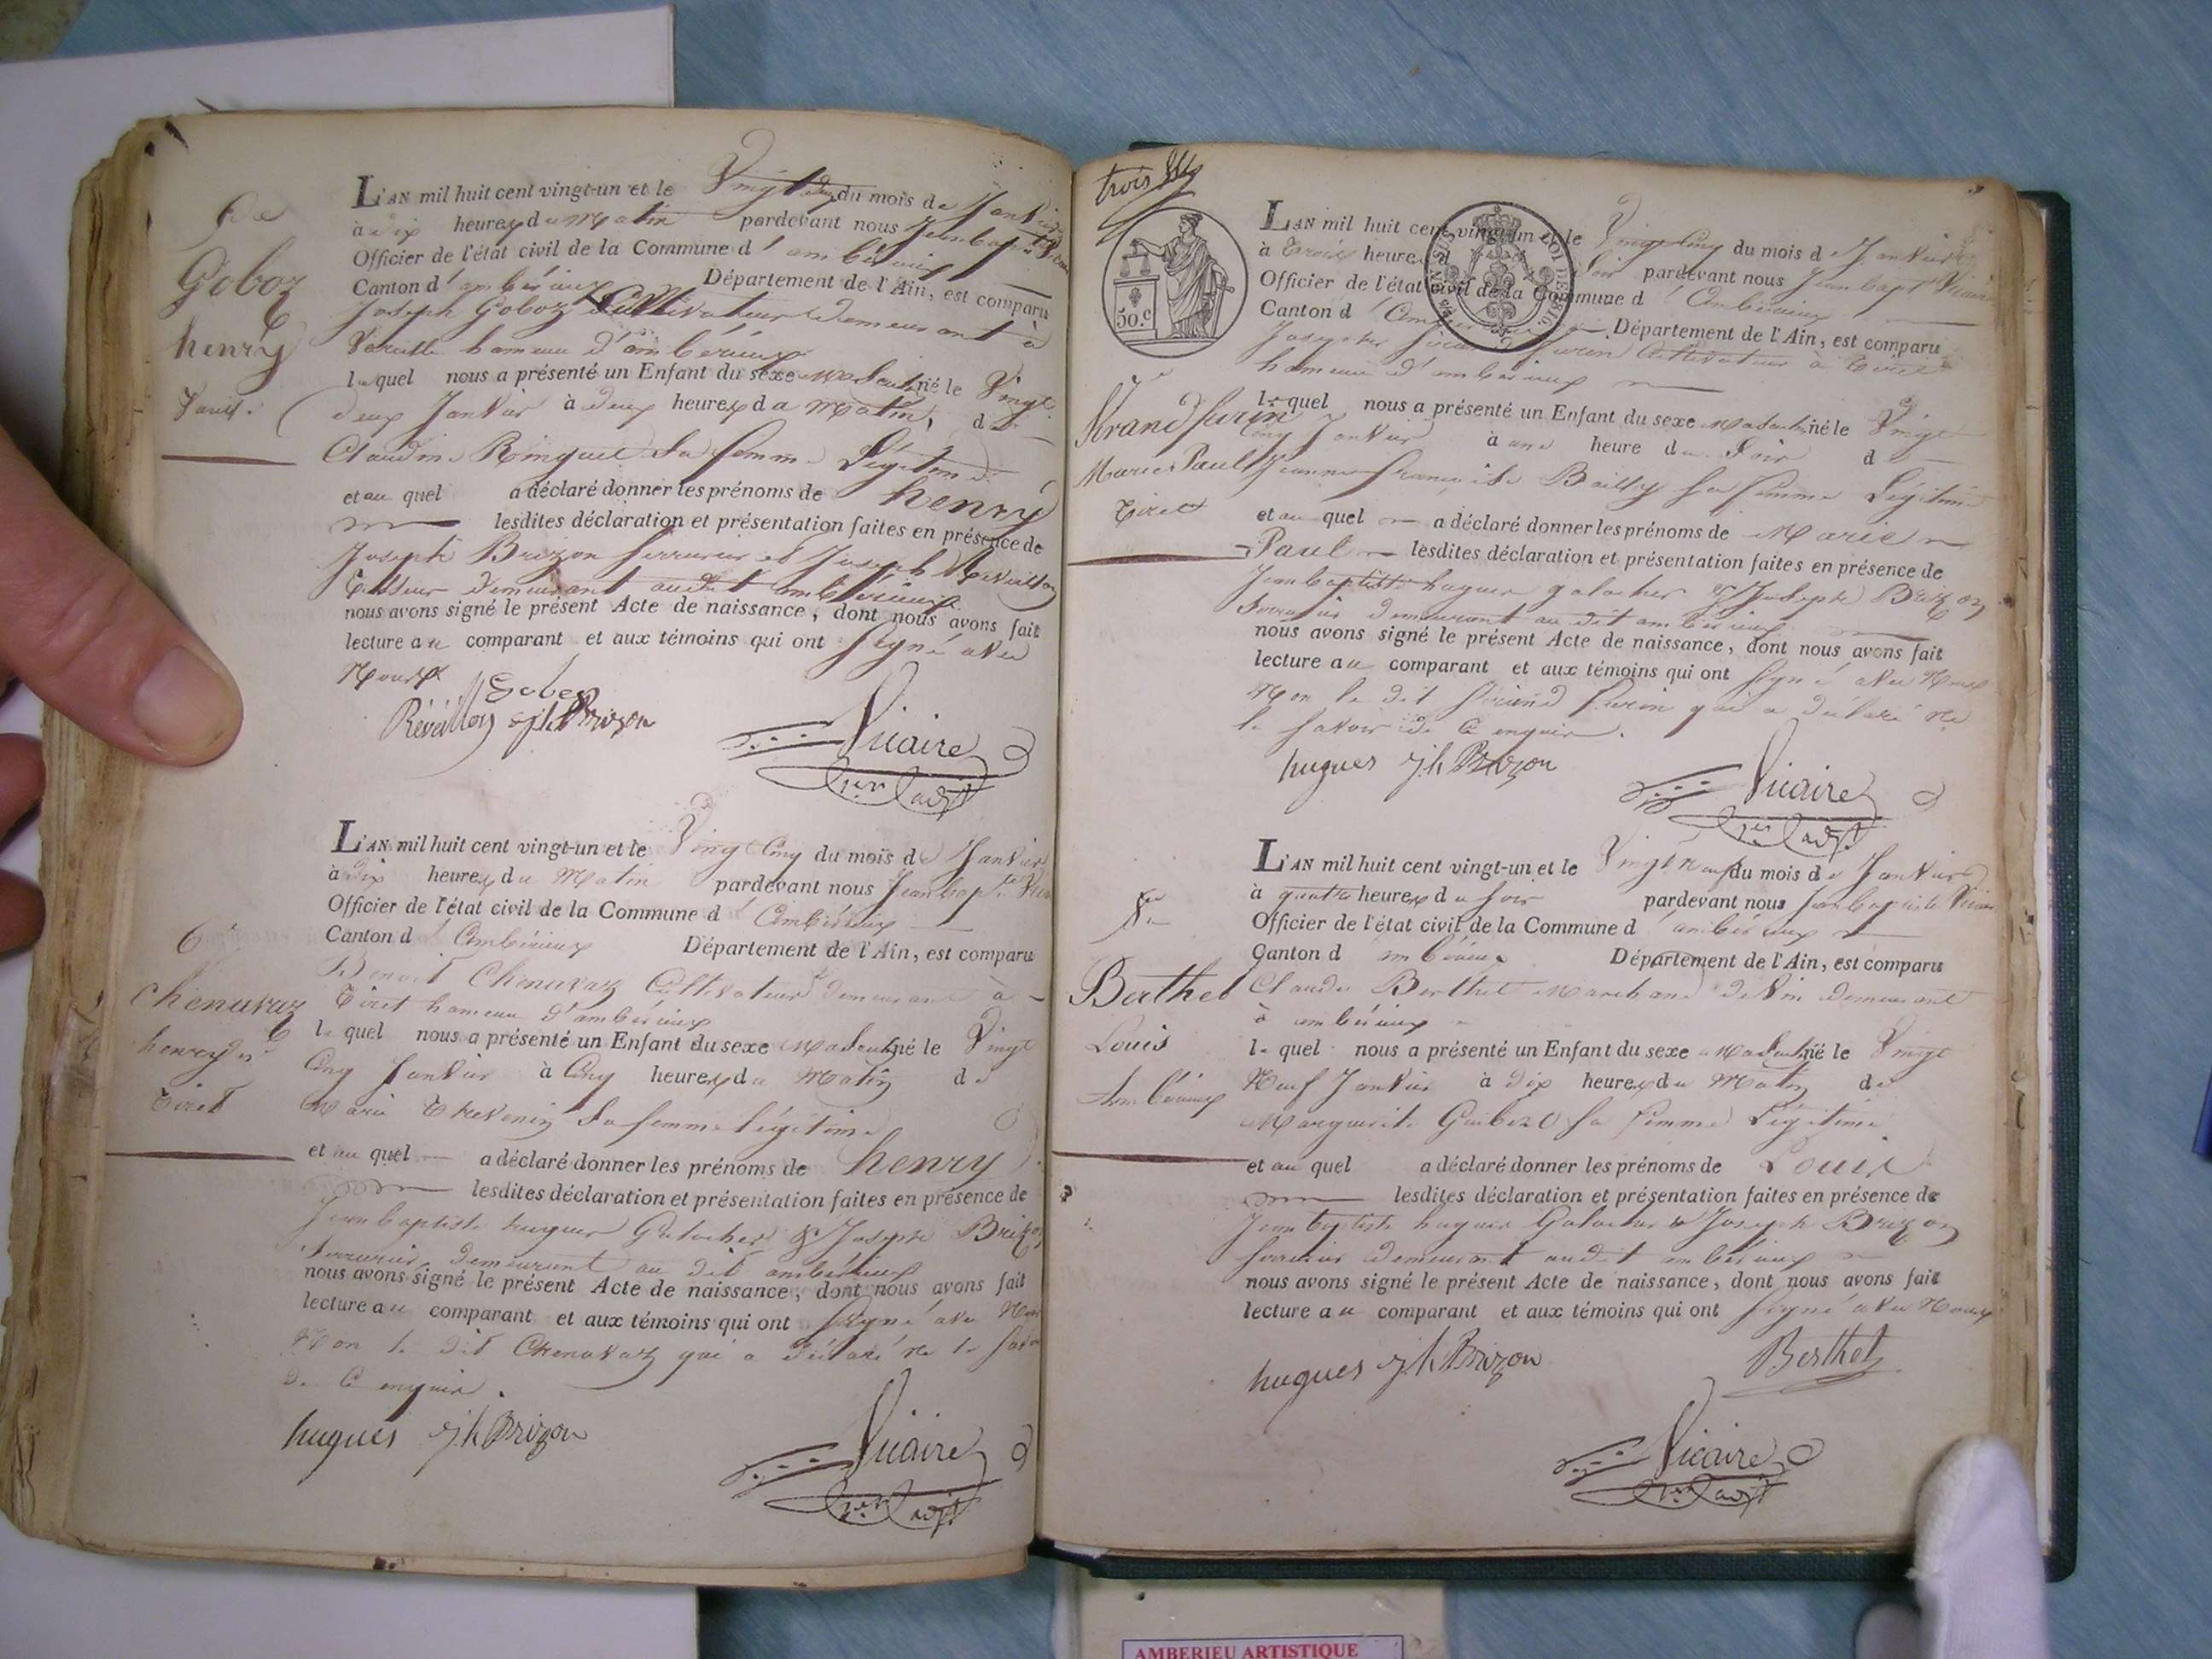 Goboz
henry
L'AN mil huit cent vingt-un et le Vingt deux du mois de Janvier
à dix heures du Matin pardevant nous Jean bapte Vicaire
Officier de l'état civil de la Commune d'ambérieux
Canton d'ambérieux Département de l'Ain, est comparu
Joseph Goboz Cultivateur demeurant à
Vareille hameau d'ambérieux
lequel nous a présenté un Enfant du sexe Masculin né le Vingt
deux Janvier à deux heures du Matin, de
Claudine Ringuet Sa femme Légitime
et au quel a déclaré donner les prénoms de henry
lesdites déclaration et présentation faites en présence de
Joseph Brizon Serrurier et Joseph Réveillon
demeurant audit ambérieux
nous avons signé le présent Acte de naissance, dont nous avons fait
lecture au comparant et aux témoins qui ont Signé avec
Nous
Goboz
Réveillon jh Brizon
Vicaire
1er adjt
6e
Chenavaz
henry
Tiret
L'AN mil huit cent vingt-un et le Vingt Cinq du mois de Janvier
à dix heures du Matin pardevant nous Jean bapte Vicaire
Officier de l'état civil de la Commune d'Ambérieux
Canton d'Ambérieux Département de l'Ain, est comparu
Benoit Chenavaz Cultivateur demeurant à
Tiret hameau d'ambérieux
lequel nous a présenté un Enfant du sexe Masculin né le Vingt
Cinq Janvier à Cinq heures du Matin de
Marie Thevenin Sa femme légitime
et au quel a déclaré donner les prénoms de henry
lesdites déclaration et présentation faites en présence de
Jean baptiste hugues Galocher & Joseph Brizon
Serrurier demeurant au dit ambérieux
nous avons signé le présent Acte de naissance, dont nous avons fait
lecture au comparant et aux témoins qui ont Signé avec Nous
Non le dit Chenavaz qui a déclaré ne le savoir
de Ce enquis.
hugues jh Brizon
Vicaire
1er adjt
trois
50.c
Marie Paul
Tiret
L'AN mil huit cent vingt-un et le Vingt Cinq du mois de Janvier
à Trois heures du Soir pardevant nous Jean bapt Vicaire
Officier de l'état civil de la Commune d'Ambérieux
Canton d'Ambérieux Département de l'Ain, est comparu
Cultivateur à Tiret
hameau d'ambérieux
lequel nous a présenté un Enfant du sexe Masculin né le Vingt
Cinq Janvier à une heure du Soir de
Jeanne françoise Bailly Sa femme Légitime
et au quel a déclaré donner les prénoms de Marie
Paul lesdites déclaration et présentation faites en présence de
Jean baptiste hugues galocher & Joseph Brizon
Serrurier demeurant au dit ambérieux
nous avons signé le présent Acte de naissance, dont nous avons fait
lecture au comparant et aux témoins qui ont Signé avec Nous
Non le dit furin qui a déclaré ne
le savoir de Ce enquis.
hugues jh Brizon
Vicaire
1er adjt
Berthet
Louis
Ambérieux
L'AN mil huit cent vingt-un et le Vingt Neuf du mois de Janvier
à quatre heures du Soir pardevant nous Jean baptiste Vicaire
Officier de l'état civil de la Commune d'ambérieux
Canton d'ambérieux Département de l'Ain, est comparu
Claude Berthet Marchand de Vin demeurant
à ambérieux
lequel nous a présenté un Enfant du sexe Masculin né le Vingt
Neuf Janvier à dix heures du Matin de
Marguerite Sa femme Légitime
et au quel a déclaré donner les prénoms de Louis
lesdites déclaration et présentation faites en présence de
Jean baptiste hugues Galocher & Joseph Brizon
Serrurier demeurant audit ambérieux
nous avons signé le présent Acte de naissance, dont nous avons fait
lecture au comparant et aux témoins qui ont Signé avec Nous
hugues jh Brizon Berthet
Vicaire
1er adjt
AMBERIEU ARTISTIQUE